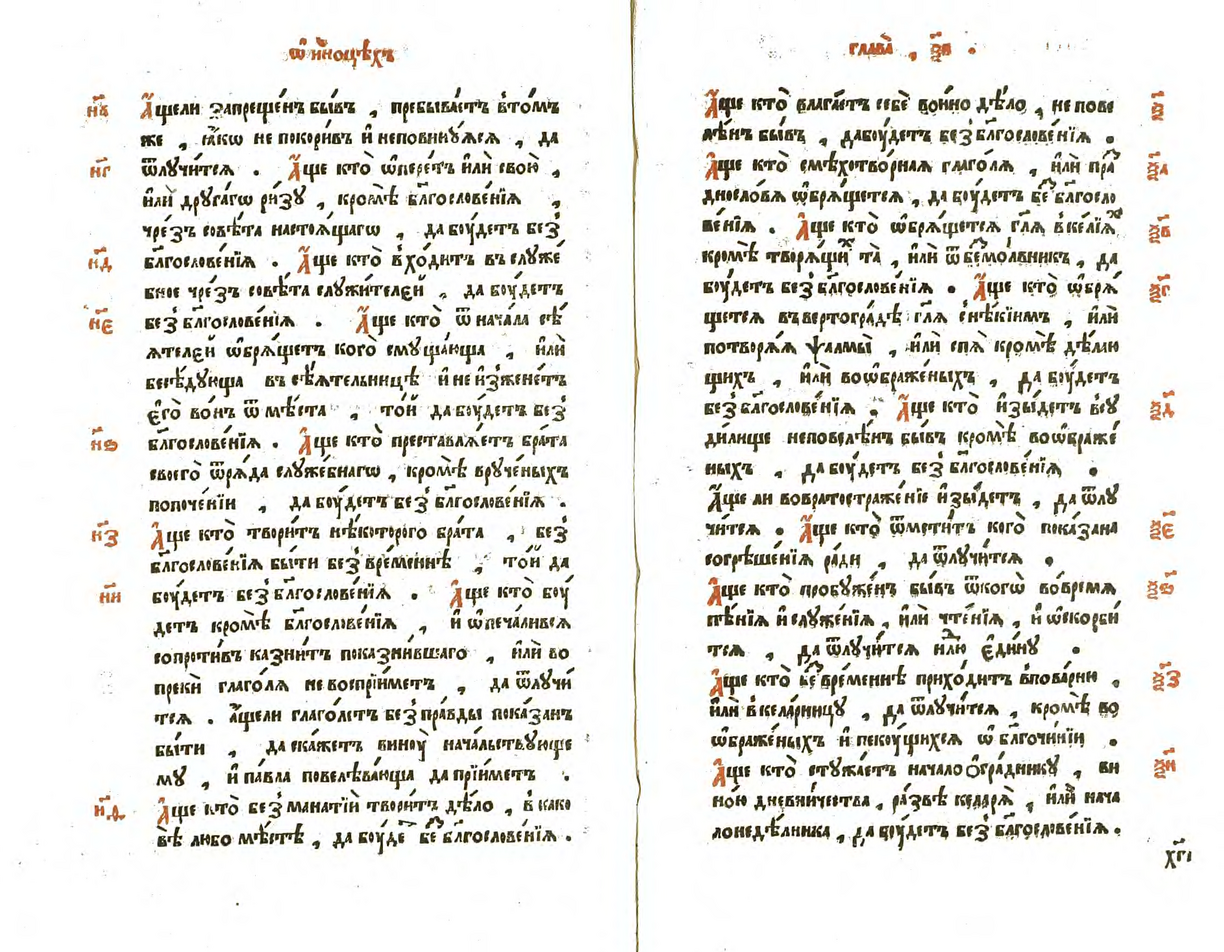 ѿ и҆́ноцѣхъ
н҃в А҆́щели запреще́нъ бы́въ , пребыва́етъ в̾то́мъ
же , ꙗ҆́кѡ не покори́въ и҆ неповину́ѧсѧ , да
н҃г ѿлꙋчи́тсѧ . А҆́ще кто̀ ѡ҆пере́тъ и҆лѝ свою̀ ,
и҆лѝ дрꙋга́гѡ ри́зꙋ , кромѣ̀ бл҃гослове́нїѧ ,
чрезъ совѣ́та настоѧ́щагѡ , да бꙋ́детъ без̾
н҃д бл҃гослове́нїѧ . А҆́ще кто̀ в̾хо́дитъ въ слꙋже́
бное чрез̾ совѣ́та слꙋжи́телєй , да боу́детъ
н҃є без̾ бл҃гослове́нїѧ . А҆́ще кто̀ ѿ нача́ла сѣ́
ѧтелєй ѡ҆брѧ́щетъ кого̀ смꙋща́юща , и҆лѝ
бесѣ́дꙋюща въ сѣ́ѧтельницѣ и҆ не и҆зжене́тъ
є҆го̀ во́нъ ѿ мѣ́ста , то́й да боу́детъ без̾
н҃ѕ бл҃гослове́нїѧ . А҆́ще кто̀ преставлѧ́етъ бра́та
своего̀ ѿрѧ́да слꙋже́бнагѡ , кромѣ̀ врꙋче́ныхъ
попоче́нїи , да боу́детъ без̾ бл҃гослове́нїѧ .
н҃з А҆́ще кто̀ твори́тъ нѣ́которого бра́та , без̾
бл҃гослове́нїѧ бы́ти без̾ вре́меннѣ , то́й да
н҃и боу́детъ без̾ бл҃гослове́нїѧ . А҆́ще кто̀ боу́
детъ кромѣ̀ бл҃гослове́нїѧ , и҆ ѡ҆печа́ливсѧ
сопроти́въ казни́тъ показни́вшаго , и҆лѝ во
прекѝ глаго́лѧ невоспрїи́метъ , да ѿлꙋчи́
тсѧ . а҆́щели глаго́летъ без̾ пра́вды пока́занъ
бы́ти , да ска́жетъ винꙋ̀ нача́льствꙋюще
мꙋ , и҆ па́вла повелѣва́юща да прїи́метъ .
н҃ѳ А҆́ще кто̀ без̾ мана́тїи твори́тъ дѣ́ло , в̾ како
вѣ́ любо мѣ́стѣ , да боу́де бе̾ бл҃гослове́нїѧ .
глава̀ , ѯ҃в .
ѯ҃ А҆́ще кто̀ влага́етъ себѐ во и҆́но дѣ́ло , не пове
лѣ́нъ бы́въ , да боу́детъ без̾ бл҃гослове́нїѧ .
ѯ҃а А҆́ще кто̀ смѣхотво́рнаѧ глаго́лѧ , и҆лѝ пра́
днослова ѡ҆брѧ́щетсѧ , да боу́детъ бе̾ бл҃госло
ѯ҃в ве́нїѧ . А҆́ще кто̀ ѡ҆брѧ́щетсѧ гл҃ѧ в̾ ке́лїѧхъ
кромѣ̀ творѧ́щих та̀ , и҆лѝ ѿ безмо́лвникъ , да
ѯ҃г боу́детъ без̾ бл҃гослове́нїѧ . А҆́ще кто̀ ѡ҆брѧ́
щетсѧ въ вертогра́дѣ гл҃ѧ с̾нѣ́кїимъ , и҆лѝ
потворѧ́ѧ ѱалмы̀ , и҆лѝ спѧ̀ кромѣ̀ дѣ́лаю
щихъ , и҆лѝ воѡбраже́ныхъ , да боу́детъ
ѯ҃д без̾ бл҃гослове́нїѧ . А҆́ще кто̀ и҆зы́детъ в̾сꙋ
ди́лище неповелѣ́нъ бы́въ кромѣ̀ воѡбраже́
ныхъ , да боу́детъ без̾ бл҃гослове́нїѧ .
А҆́ще ли во вратостраже́нїе и҆зы́детъ , да ѿлꙋ
ѯ҃є чи́тсѧ . А҆́ще кто̀ ѿмети́тъ кого̀ пока́зана
согрѣше́нїѧ ра́ди , да ѿлꙋчи́тсѧ .
ѯ҃ѕ А҆́ще кто̀ пробꙋже́нъ бы́въ ѿ когѡ̀ во́ времѧ
пѣ́нїѧ и҆ слꙋже́нїѧ , и҆лѝ чте́нїѧ , и҆ ѡ҆скорби́
тсѧ , да ѿлꙋчи́тсѧ нлю є҆ди́нꙋ .
ѯ҃з А҆́ще кто̀ бе̾вре́меннѣ прихо́дитъ в̾ пова́рни ,
и҆лѝ в̾ кела́рницꙋ , да ѿлꙋчи́тсѧ , кромѣ̀ во
ѡ҆браже́ныхъ и҆ пекꙋ́щихсѧ ѡ҆ бл҃гочи́нїи .
ѯ҃и А҆́ще кто̀ стꙋжа́етъ начало ѻ҆гра́дникꙋ , ви
но́ю дневни́чества , ра́звѣ келарѧ̀ , и҆лѝ нача
лонедѣ́лника , да боу́детъ без̾ бл҃гослове́нїѧ .
х҃гі